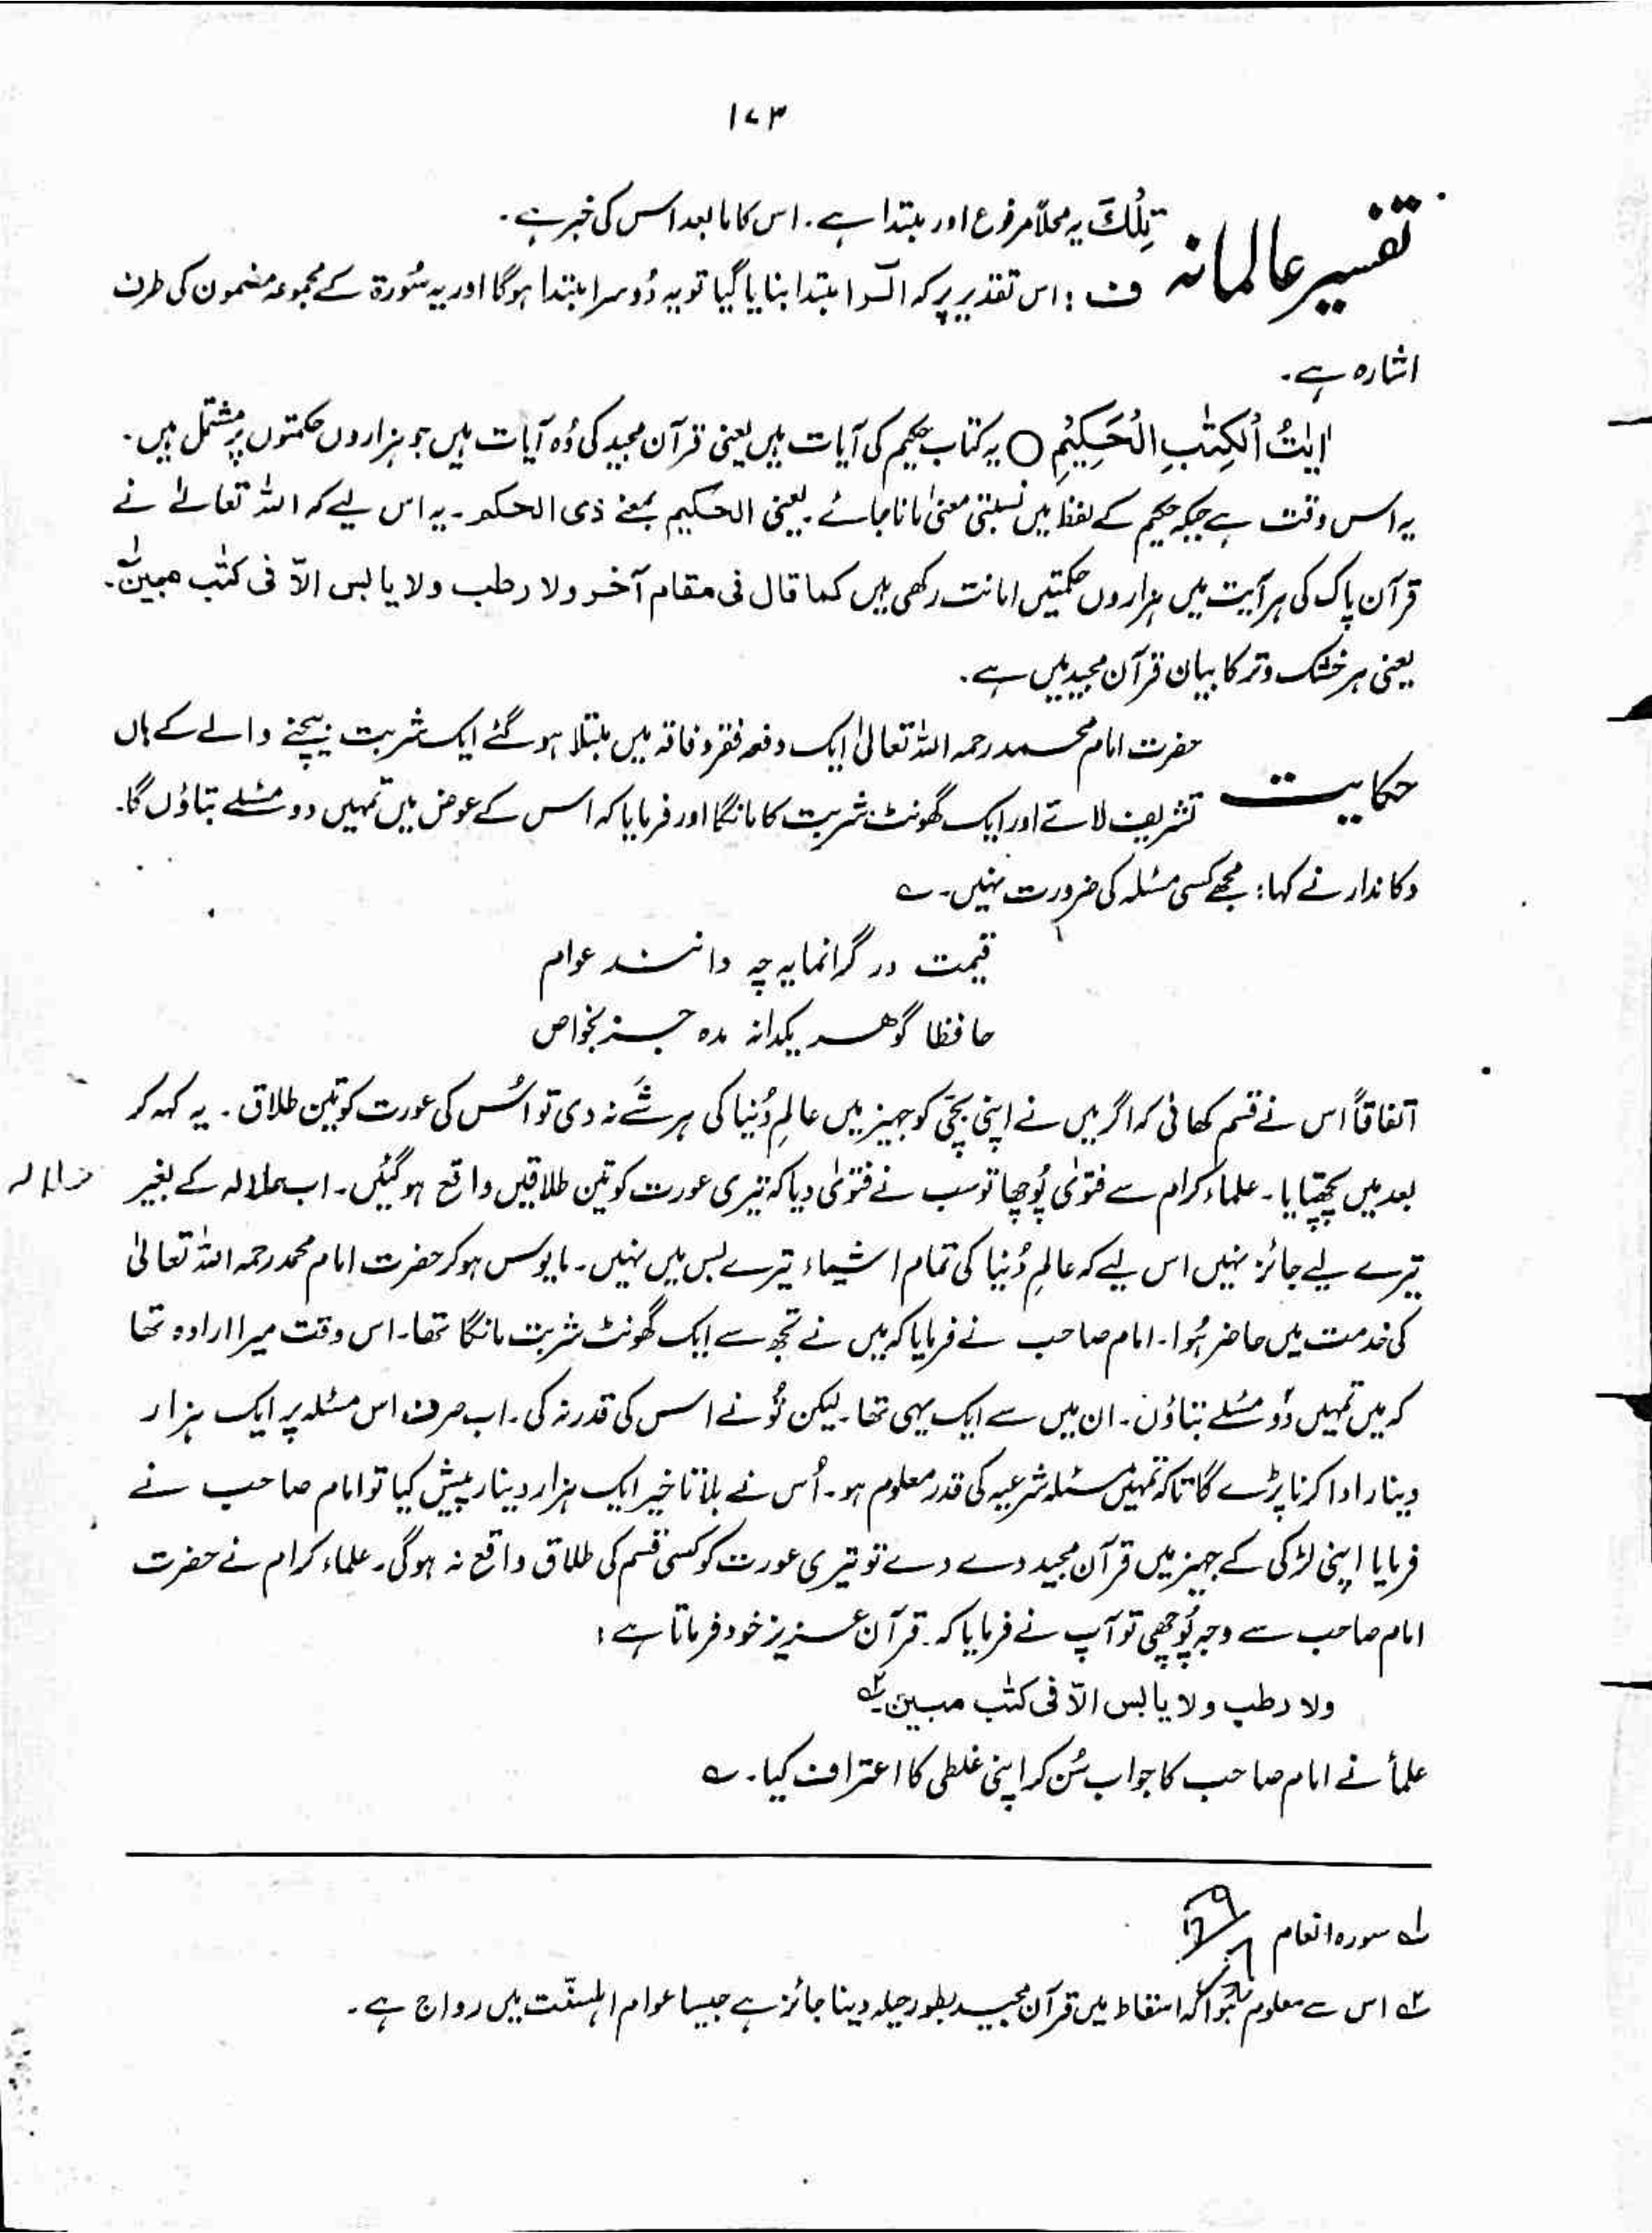 ۱۷۳
تفسیر عالمانہ تِلْکَ یہ محلاً مرفوع اور مبتدا ہے۔ اس کا مابعد اس کی خبر ہے۔
ف : اس تقدیر پر کہ الٓرٰ مبتدا بنایا گیا تو یہ دُوسرا مبتدا ہوگا اور یہ سُورۃ کے مجموعہ مضمون کی طرف
اشارہ ہے۔
اٰیٰتُ الْکِتٰبِ الْحَکِیْمِ ○ یہ کتاب حکیم کی آیات ہیں یعنی قرآن مجید کی وُہ آیات ہیں جو ہزاروں حکمتوں پر مشتمل ہیں۔
یہ اس وقت ہے جبکہ حکیم کے لفظ میں نسبتی معنیٰ مانا جائے۔ یعنی الحکیم بمعنے ذی الحکم۔ یہ اس لیے کہ اللہ تعالےٰ نے
قرآن پاک کی ہر آیت میں ہزاروں حکمتیں امانت رکھی ہیں کما قال فی مقام آخر ولا رطب ولا یابس الاّ فی کتٰب مبین۔
یعنی ہر خشک و تر کا بیان قرآن مجید میں ہے۔
حکایت حضرت امام محمد رحمہ اللہ تعالیٰ ایک دفعہ فقر و فاقہ میں مبتلا ہو گئے ایک شربت بیچنے والے کے ہاں
تشریف لائے اور ایک گھونٹ شربت کا مانگا اور فرمایا کہ اس کے عوض میں تمہیں دو مسئلے بتاؤں گا۔
دکاندار نے کہا: مجھے کسی مسئلہ کی ضرورت نہیں۔ ے
قیمت در گرانمایہ چہ دانند عوام
حافظا گوہر یکدانہ مدہ جز بخواص
اتفاقاً اس نے قسم کھائی کہ اگر میں نے اپنی بچّی کو جہیز میں عالمِ دُنیا کی ہر شے نہ دی تو اُس کی عورت کو تین طلاق۔ یہ کہہ کر
بعد میں پچھتایا۔ علماء کرام سے فتویٰ پُوچھا تو سب نے فتویٰ دیا کہ تیری عورت کو تین طلاقیں واقع ہوگئیں۔ اب حلالہ کے بغیر
تیرے لیے جائز نہیں اس لیے کہ عالمِ دُنیا کی تمام اشیاء تیرے بس میں نہیں۔ مایوس ہو کر حضرت امام محمد رحمہ اللہ تعالیٰ
کی خدمت میں حاضر ہُوا۔ امام صاحب نے فرمایا کہ میں نے تجھ سے ایک گھونٹ شربت مانگا تھا۔ اس وقت میرا ارادہ تھا
کہ میں تمہیں دُو مسئلے بتاؤں۔ ان میں سے ایک یہی تھا۔ لیکن تُو نے اس کی قدر نہ کی۔ اب صرف اس مسئلہ پر ایک ہزار
دینار ادا کرنا پڑے گا تاکہ تمہیں مسئلہ شرعیہ کی قدر معلوم ہو۔ اُس نے بلا تاخیر ایک ہزار دینار پیش کیا تو امام صاحب نے
فرمایا اپنی لڑکی کے جہیز میں قرآن مجید دے دے تو تیری عورت کو کسی قسم کی طلاق واقع نہ ہوگی۔ علماء کرام نے حضرت
امام صاحب سے وجہ پُوچھی تو آپ نے فرمایا کہ۔ قرآن عزیز خود فرماتا ہے :
ولا رطب ولا یابس الاّ فی کتٰب مبین۔
علمأ نے امام صاحب کا جواب سُن کر اپنی غلطی کا اعتراف کیا۔ ے
۱ سورہ انعام
۲ اس سے معلوم ہُوا کہ اسقاط میں قرآن مجید بطور حیلہ دینا جائز ہے جیسا عوام اہلسنّت میں رواج ہے۔